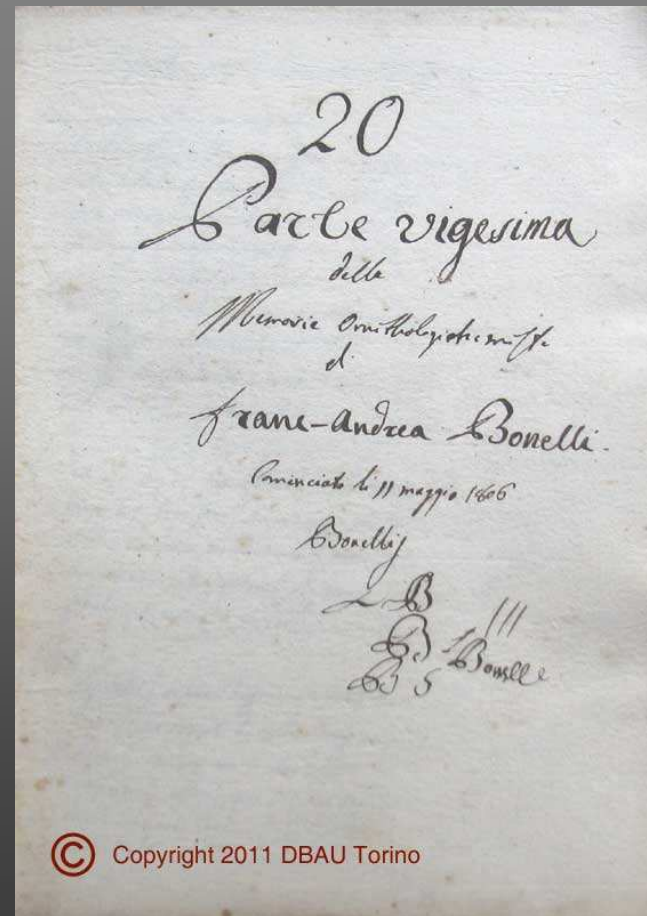 20
Parte vigesima
delle
Memorie Ornithologiche miste
di
Franc-Andrea Bonelli.
Cominciato li 11 maggio 1806
Bonellij
B
B Bonelle
B S
© Copyright 2011 DBAU Torino